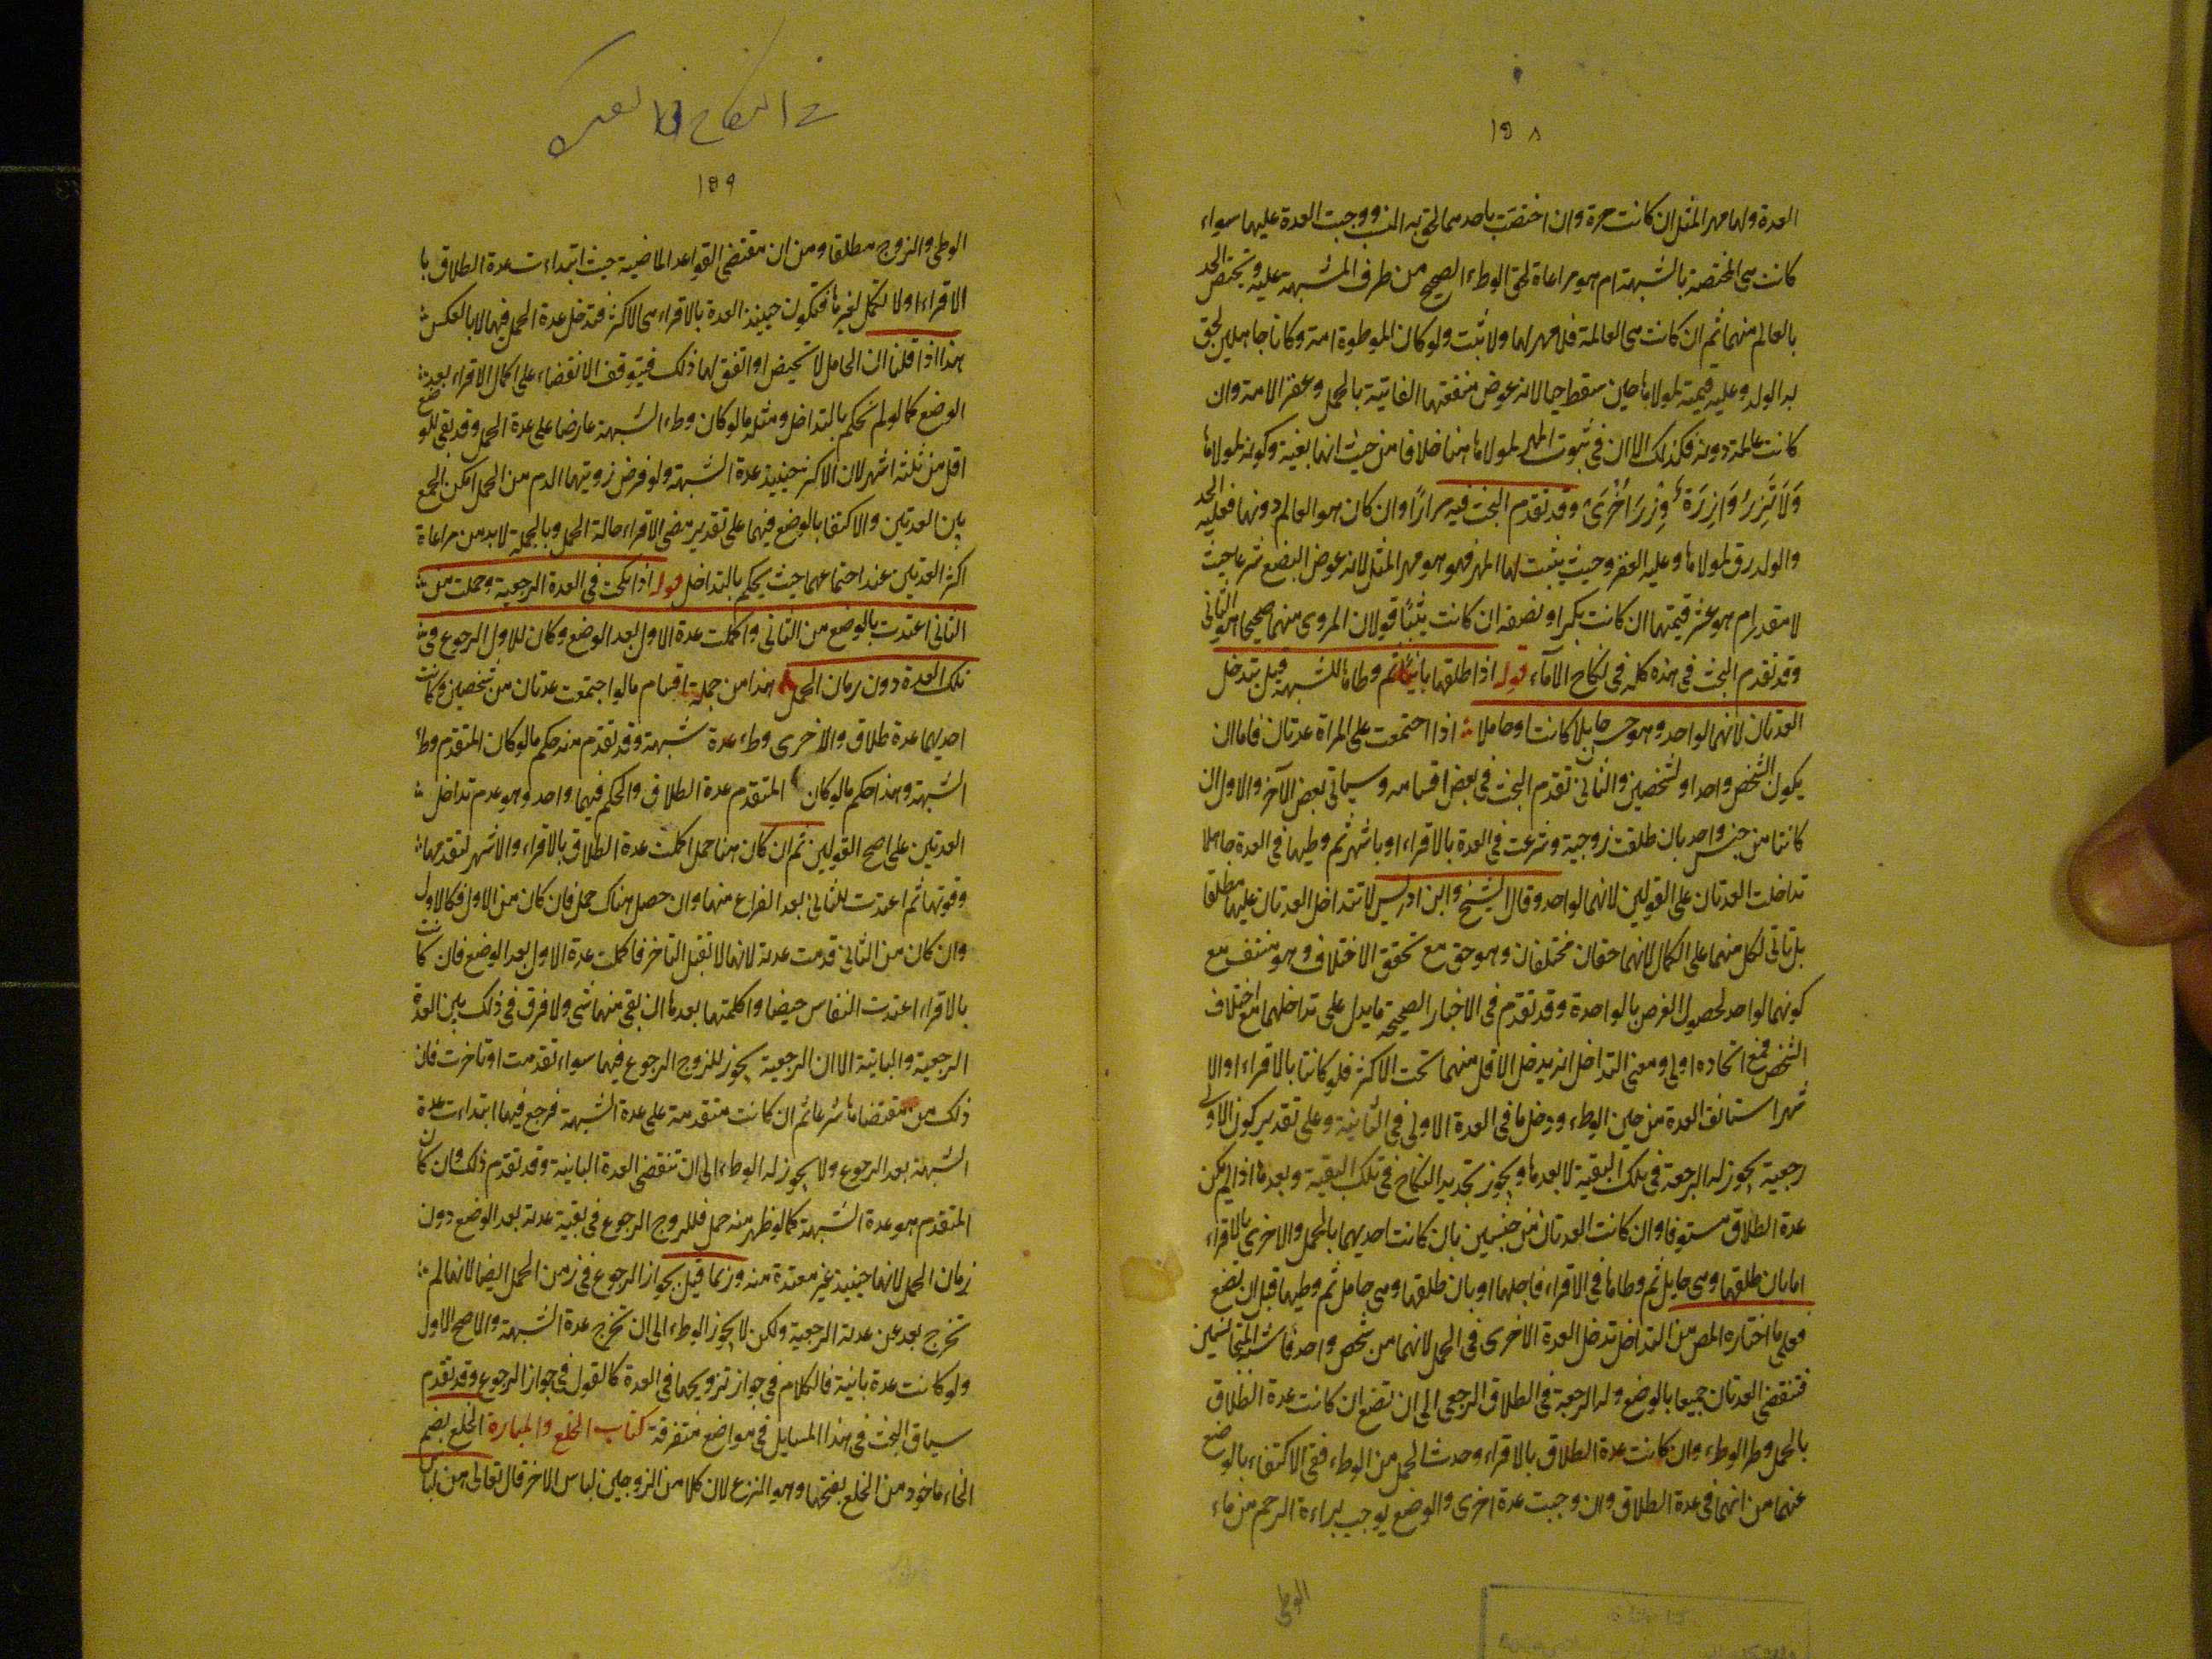 ١٥٨
العدة ولها مهر المثل ان كانت حرة وان اختصت باحدهما لحق به النسب ووجبت العدة عليهما سواء
كانت هي المختصة بالشبهة ام هو مراعاة لحق الوطء الصحيح من طرف المشبهة عليه ويختص الحد
بالعالم منهما ثم ان كانت هي العالمة فلا مهر لها ولا ثبت ولو كان الموطوءة امة وكانا جاهلين لحق
به الولد وعليه قيمته لمولاها حين سقط حيا لانه عوض منفعتها الفائتة بالحمل وعقر الامة وان
كانت عالمة دونه فكذلك الا ان في ثبوت المهر لمولاها هنا خلافا من حيث انها بغية وكونه لمولاها
وَلَا تَزِرُ وَازِرَةٌ وِزْرَ اُخْرَى وقد تقدم البحث فيه مرارًا وان كان هو العالم دونها فعليه الحد
والولد رق لمولاها وعليه العقر وحيث يثبت لها المهر فهو هو مهر المثل لانه عوض البضع شرعا حيث
لا مقدر ام هو عشر قيمتها ان كانت بكرا ونصفه ان كانت ثيبًا قولان المروى منهما صحيحا هو الثاني
وقد تقدم البحث في هذه كله في نكاح الامآء قوله اذا طلقها بائنًا ثم وطاها للشبهة قيل يتدخل
العدتان لانهما لواحد وهو حسن حايلا كانت او حاملا اذا اجتمعت على المراة عدتان فاما ان
يكون الشخص واحد او لشخصين والثاني تقدم البحث في بعض اقسامه وسياتي بعض الآخر والاول ان
كانتا من جنس واحد بان طلقت زوجية وشرعت في العدة بالاقراء او باشهر ثم وطيها في العدة جاهلا
تداخلت العدتان على القولين لانهما لواحد وقال الشيخ وابن ادريس لا تتداخل العدتان عليهما مطلقا
بل تاتي لكل منهما على الكمال لانهما حقان مختلفان وهو حق مع تحقق الاختلاف وهو منتف مع
كونهما لواحد لحصول الغرض بالواحدة وقد تقدم في الاخبار الصحيحة ما يدل على تداخلهما مع اختلاف
الشخص فمع اتحاده اولى ومعنى التداخل انه يدخل الاقل منهما تحت الاكثر فلو كانتا بالاقراء او الا
شهرا ستانف العدة من حين الوطء ودخل ما في العدة الاولى في الثانية وعلى تقدير كون الاولى
رجعية يجوز له الرجعة في تلك البقية لا بعدها ويجوز تجديد النكاح في تلك البقية وبعدها اذا لم يكن
عدة الطلاق مستوفا وان كانت العدتان من جنسين بان كانت احديهما بالحمل والاخرى بالاقراء
اما بان طلقها وهي حايل ثم وطاها في الاقراء فاحبلها او بان طلقها وهي حامل ثم وطيها قبل ان تضع
فعلى ما اختاره المص من التداخل تدخل العدة الاخرى في الحمل لانهما من شخص واحد فاشبه المتجانسين
فتنقضي العدتان جميعا بالوضع وله الرجعة في الطلاق الرجعي الى ان تضع ان كانت عدة الطلاق
بالحمل وطرا الوطء وان كانت عدة الطلاق بالاقراء وحدث الحمل من الوطء ففي الاكتفاء بالوضع
عنهما من انهما في عدة الطلاق وان وجبت عدة اخرى والوضع يوجب براءة الرحم من ماء
الوطى
في النكاح
١٥٩
الوطى والزوج مطلقا ومن ان مقتضى القواعد الماضية حيث ابتداءت عدة الطلاق با
الاقراء او لا تكمل لغيرها فتكون حينئذ العدة بالاقراء هي الاكثر فتدخل عدة الحمل فيها لا بالعكس
هذا اذا قلنا ان الحامل لا تحيض او اتفق لها ذلك فيتوقف الانقضاء على اكمال الاقراء بعد
الوضع كما لو لم نحكم بالتداخل ومثله ما لو كان وطء الشبهة عارضا على عدة الحمل وقد بقي للوضع
اقل من ثلثة اشهر لان الاكثر حينئذ عدة الشبهة ولو فرض رويتها الدم من الحمل امكن الجمع
بين العدتين والاكتفا بالوضع فيهما على تقدير مضى الاقراء حالة الحمل وبالجملة لا بد من مراعاة
اكثر العدتين عند اجتماعهما حيث يحكم بالتداخل قوله اذا نكحت في العدة الرجعية وحملت من
الثاني اعتدت بالوضع من الثاني واكملت عدة الاول بعد الوضع وكان للاول الرجوع في
تلك العدة دون زمان الحمل هذا من جملة اقسام ما لو اجتمعت عدتان من شخصين وكانت
احديهما عدة طلاق والاخرى وطء عدة شبهة وقد تقدم منه حكم ما لو كان المتقدم وطء
الشبهة وهذا حكم ما لو كان المتقدم عدة الطلاق والحكم فيهما واحد وهو عدم تداخل
العدتين على اصح القولين ثم ان كان هنا حمل اكملت عدة الطلاق بالاقراء والاشهر لتقدمها
وقوتها ثم اعتدت للثاني بعد الفراغ منها وان حصل هناك حمل فان كان من الاول فكالاول
وان كان من الثاني قدمت عدته لانها لا تقبل التاخر فاكملت عدة الاول بعد الوضع فان كانت
بالاقراء اعتدت النفاس حيضا واكملتها بعدها ان بقي منها شى ولا فرق في ذلك بين العدة
الرجعية والباينة الا ان الرجعية يجوز للزوج الرجوع فيها سواء تقدمت او تاخرت فان
ذلك من مقتضاها شرعا ثم ان كانت متقدمة على عدة الشبهة فرجع فيها ابتداءت عدة
الشبهة بعد الرجوع ولا يجوز له الوطء الى ان تنقضى العدة الثانية وقد تقدم ذلك وان كان
المتقدم هو عدة الشبهة كما لو ظهر منه حمل فللزوج الرجوع في بقية عدته بعد الوضع دون
زمان الحمل لانها حينئذ غير معتدة منه وربما قيل بجواز الرجوع في زمن الحمل ايضا لانها لم
تخرج بعد عن عدته الرجعية ولكن لا يجوز الوطء الى ان تخرج عدة الشبهة والاصح الاول
ولو كانت عدة باينة فالكلام في جواز تزويجها في العدة كالقول في جواز الرجوع وقد تقدم
سياق البحث في هذا المسايل في مواضع متفرقة كتاب الخلع والمباراة الخلع بضم
الخاء ماخوذ من الخلع بفتحها وهو النزع لان كلا من الزوجين لباس الاخر قال تعالى هن لباس